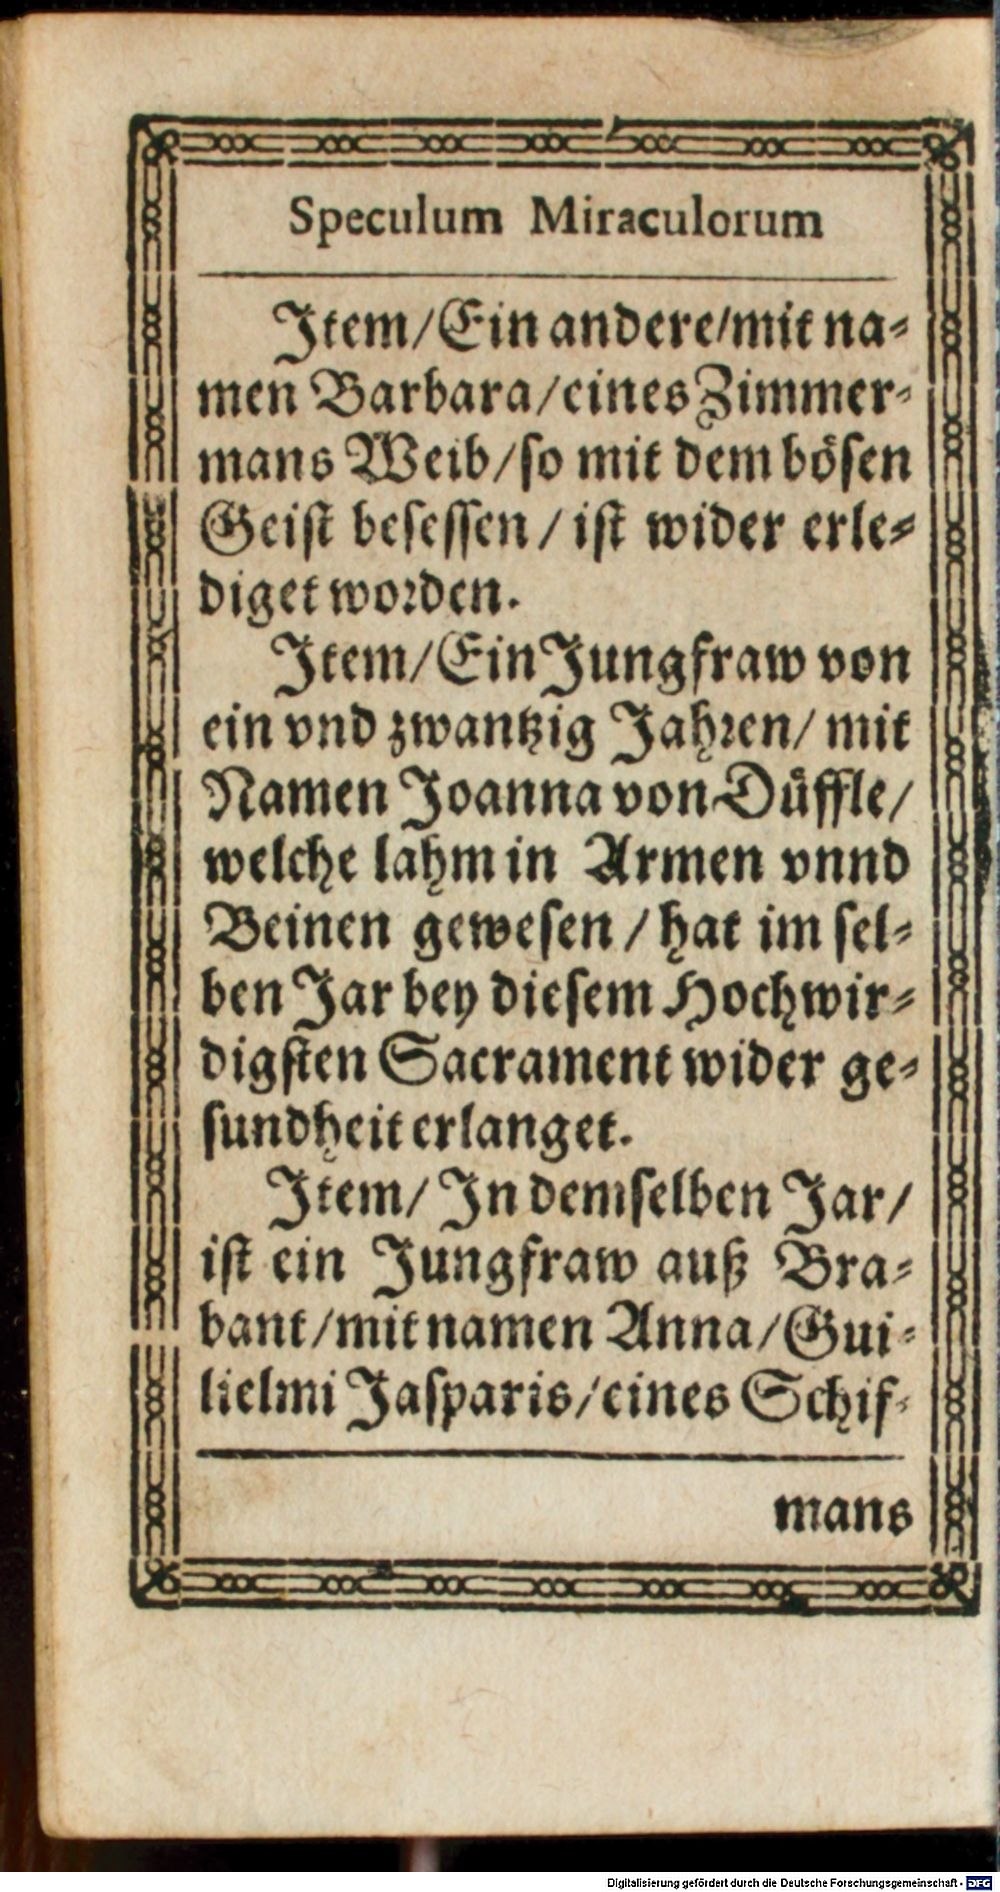 Speculum Miraculorum
Item/Ein andere/mit na⸗
men Barbara/eines Zimmer⸗
mans Weib/so mit dem bösen
Geist besessen/ist wider erle⸗
diget worden.
Item/Ein Jungfraw von
ein vnd zwantzig Jahren/mit
Namen Joanna von Düffle/
welche lahm in Armen vnnd
Beinen gewesen/hat im sel⸗
ben Jar bey diesem Hochwir⸗
digsten Sacrament wider ge⸗
sundheit erlanget.
Item/In demselben Jar/
ist ein Jungfraw auß Bra⸗
bant/mit namen Anna/Gui⸗
lielmi Jasparis/eines Schif⸗
mans
Digitalisierung gefördert durch die Deutsche Forschungsgemeinschaft - DFG